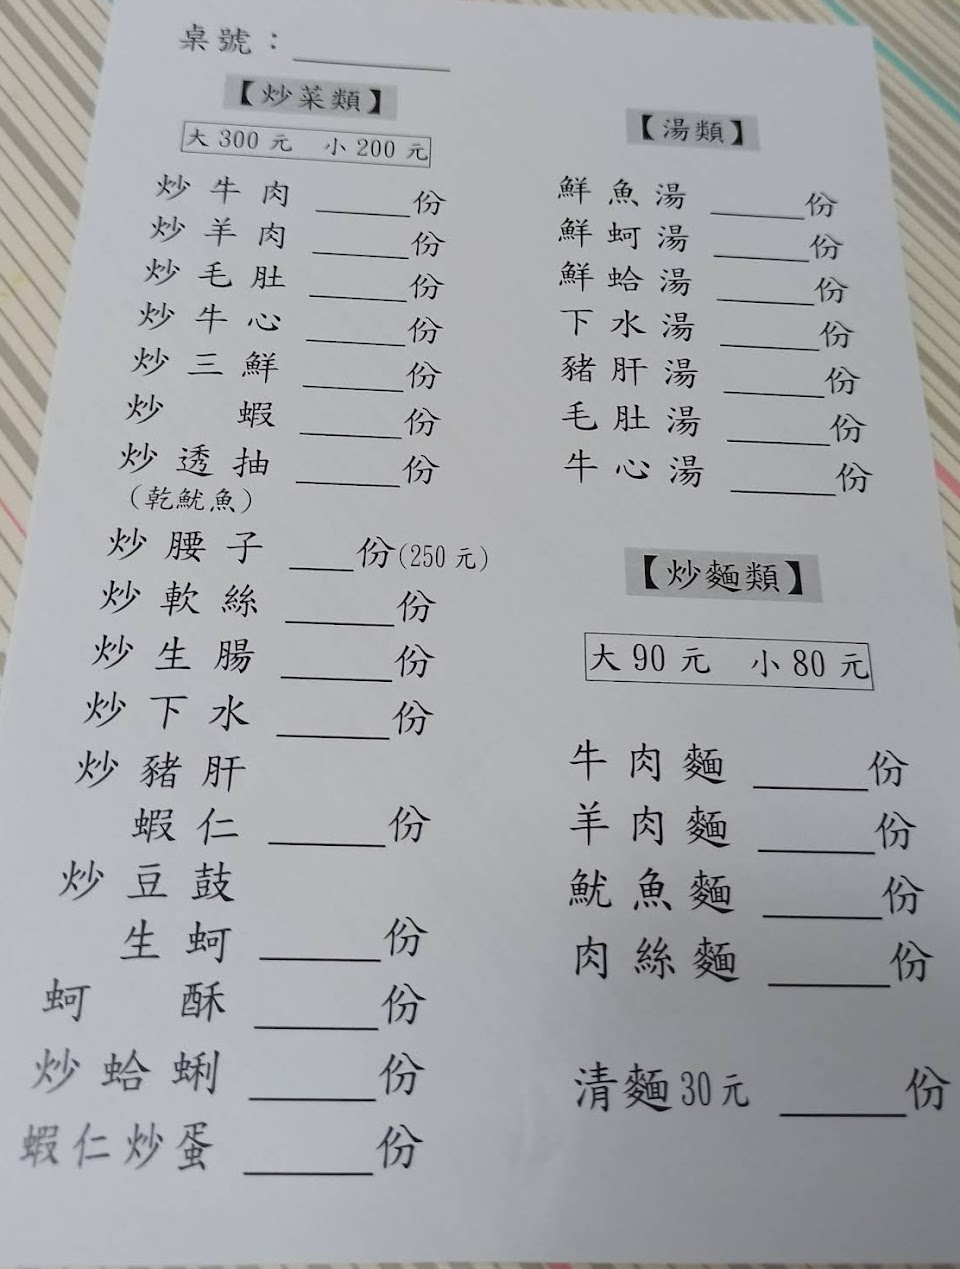 桌號：
【炒菜類】
大 300 元 小 200 元
炒牛肉 份
炒羊肉 份
炒毛肚 份
炒牛心 份
炒三鮮 份
炒 蝦 份
炒透抽 份
（乾魷魚）
炒腰子 份(250 元)
炒軟絲 份
炒生腸 份
炒下水 份
炒豬肝
蝦仁 份
炒豆鼓
生蚵 份
蚵 酥 份
炒蛤蜊 份
蝦仁炒蛋 份
【湯類】
鮮魚湯 份
鮮蚵湯 份
鮮蛤湯 份
下水湯 份
豬肝湯 份
毛肚湯 份
牛心湯 份
【炒麵類】
大 90 元 小 80 元
牛肉麵 份
羊肉麵 份
魷魚麵 份
肉絲麵 份
清麵 30 元 份